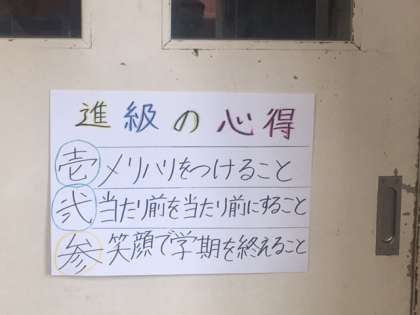 進級の心得
壱 メリハリをつけること
弐 当たり前を当たり前にすること
参 笑顔で学期を終えること